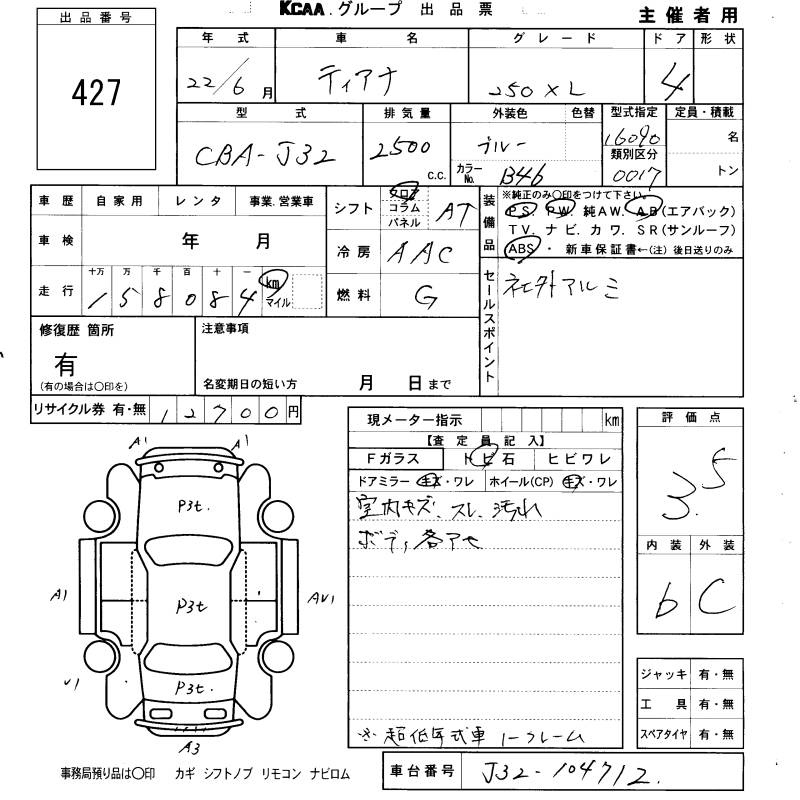 KCAA.グループ 出品票
主催者用
出品番号
427
年式 車名 グレード ドア 形状
22/6月 ティアナ 250 XL 4
型式 排気量 外装色 色替 型式指定 定員・積載
CBA-J32 2500 c.c. ブルー 16090 名
カラーNo. B46 類別区分 0017 トン
車歴 自家用 レンタ 事業.営業車
シフト フロア コラム パネル AT
装備品
※純正のみ○印をつけて下さい。
PS. PW. 純AW. AB(エアバック)
TV. ナビ. カワ. SR(サンルーフ)
ABS ・ 新車保証書←(注)後日送りのみ
車検 年 月
冷房 AAC
走行 十万 万 千 百 十 一
158084 km マイル
燃料 G
セールスポイント
社外アルミ
修復歴 箇所
有
(有の場合は○印を)
注意事項
名変期日の短い方 月 日まで
リサイクル券 有・無 12700円
現メーター指示 km
【査定員記入】
Fガラス トビ石 ヒビワレ
ドアミラー キズ・ワレ ホイール(CP) キズ・ワレ
室内キズ、スレ、汚れ
ボディ各アセ
※超低年式車 1-フレーム
評価点
3.5
内装 外装
b C
ジャッキ 有・無
工具 有・無
スペアタイヤ 有・無
A1 A1
P3t.
A1 P3t AU1
U1 P3t.
A3
事務局預り品は○印 カギ シフトノブ リモコン ナビロム
車台番号 J32-104712.